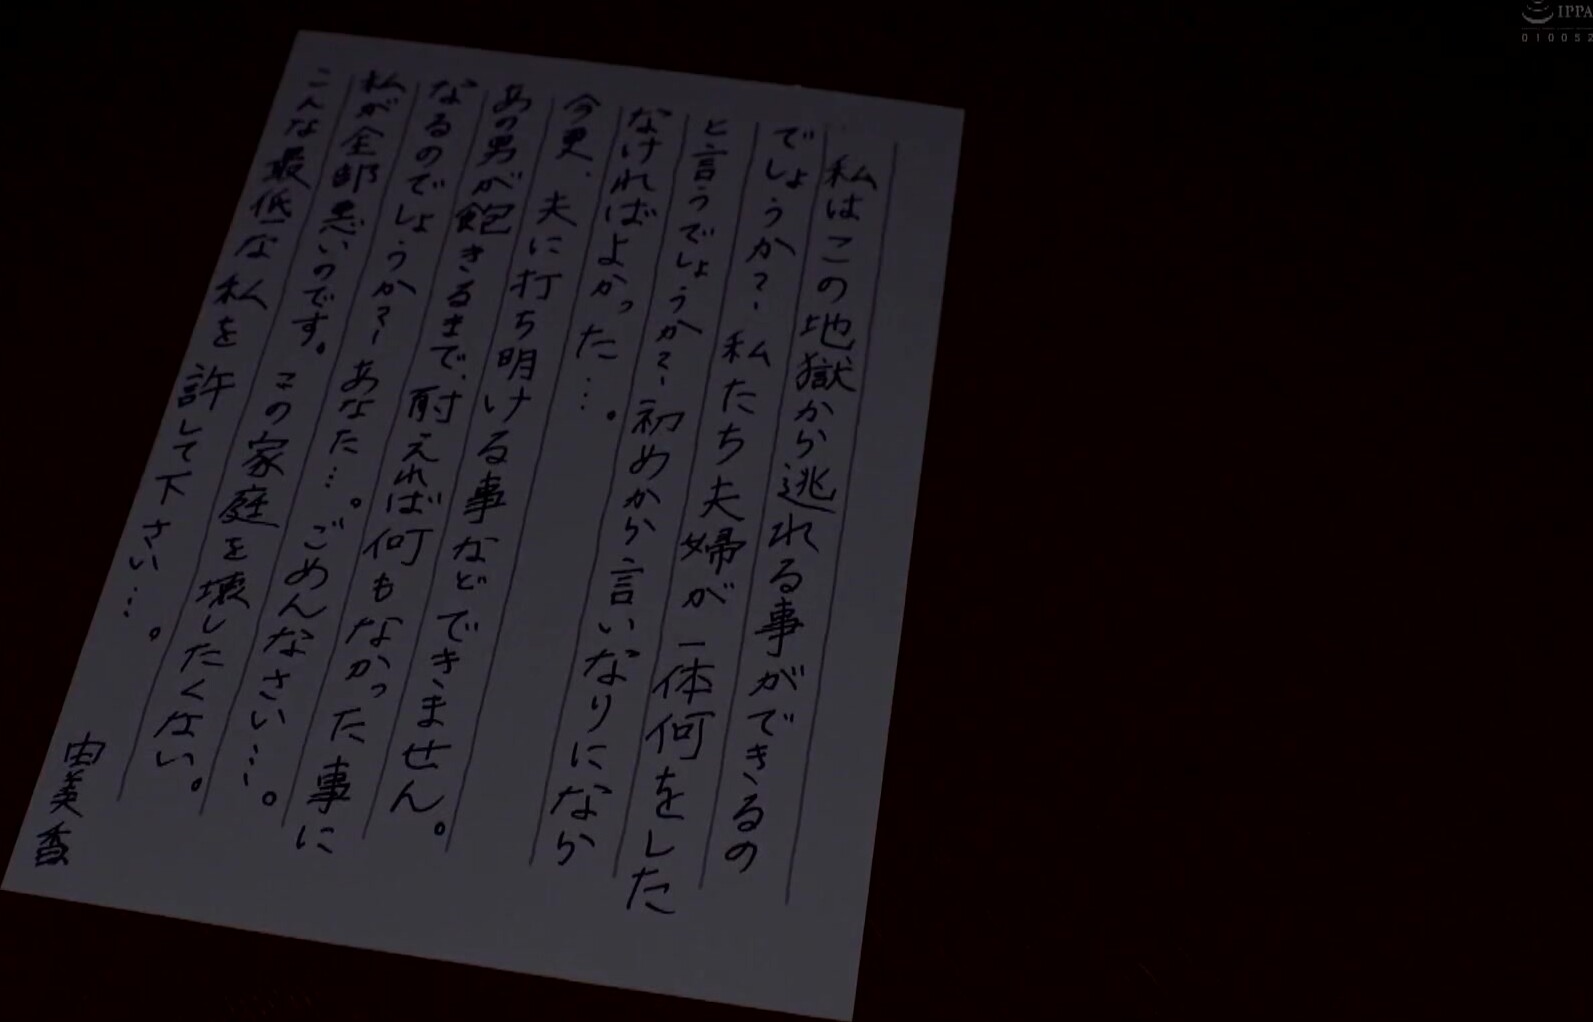 私はこの地獄から逃れる事ができるの
でしょうか?私たち夫婦が一体何をした
と言うでしょうか?初めから言いなりになら
なければよかった…。
今更、夫に打ち明ける事などできません。
あの男が飽きるまで、耐えれば何もなかった事に
なるのでしょうか?あなた…。ごめんなさい…。
私が全部悪いのです。この家庭を壊したくない。
こんな最低な私を許して下さい…。
由美香
IPPA
010052